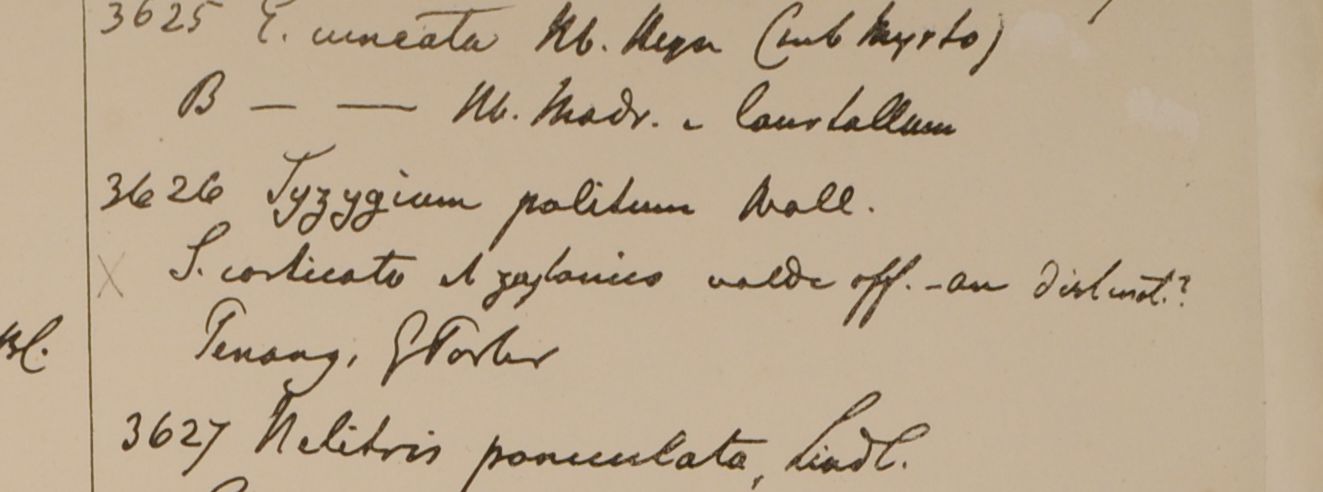 3625 E. cuneata Hb. Heyn (sub Myrto)
B — — Hb. Madr. -
3626 Syzygium politum Wall.
X S. corticato et zeylanico valde aff. - an distinct.?
Bl.
Penang, G Porter
3627 Nelitris paniculata, Lindl.